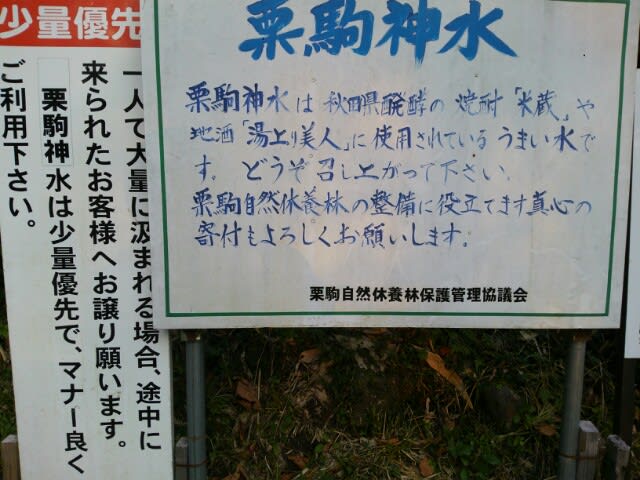 栗駒神水
栗駒神水は秋田県醗酵の焼酎「米蔵」や
地酒「湯上り美人」に使用されているうまい水で
す。どうぞ召し上がって下さい。
栗駒自然休養林の整備に役立てます真心の
寄付もよろしくお願いします。
栗駒自然休養林保護管理協議会
少量優先
一人で大量に汲まれる場合、途中に
来られたお客様へお譲り願います。
栗駒神水は少量優先で、マナー良く
ご利用下さい。